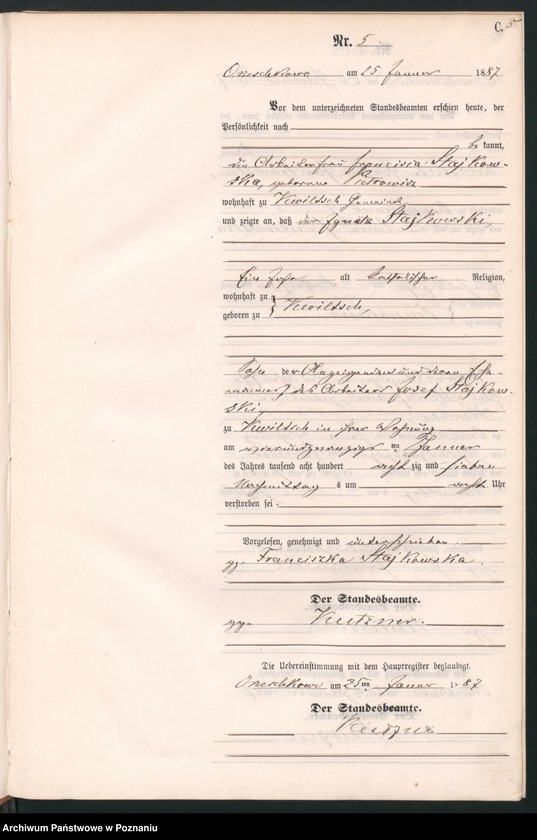 C. 5
Nr. 5.
Orzeschkowo am 25 Januar 1887
Vor dem unterzeichneten Standesbeamten erschien heute, der
Persönlichkeit nach
be kannt,
die Arbeiterfrau Francisca Stajkow-
ska, geborene Pietrowicz
wohnhaft zu Kwiltsch Gemeinde
und zeigte an, daß der Ignatz Stajkowski,
Ein Jahr alt katholischer Religion,
wohnhaft zu
geboren zu } Kwiltsch,
Sohn der Anzeigenden und deren Ehe-
mannes des Arbeiters Josef Stajkow-
ski,
zu Kwiltsch in ihrer Wohnung
am vierundzwanzigsten Januar
des Jahres tausend acht hundert acht zig und sieben
Nachmittag s um acht Uhr
verstorben sei.
Vorgelesen, genehmigt und unterschrieben.
Franciszka Stajkowska.
Der Standesbeamte.
Kutzner.
Die Uebereinstimmung mit dem Hauptregister beglaubigt.
Orzeschkowo am 25ten Januar 1887
Der Standesbeamte.
Kutzner
Archiwum Państwowe w Poznaniu